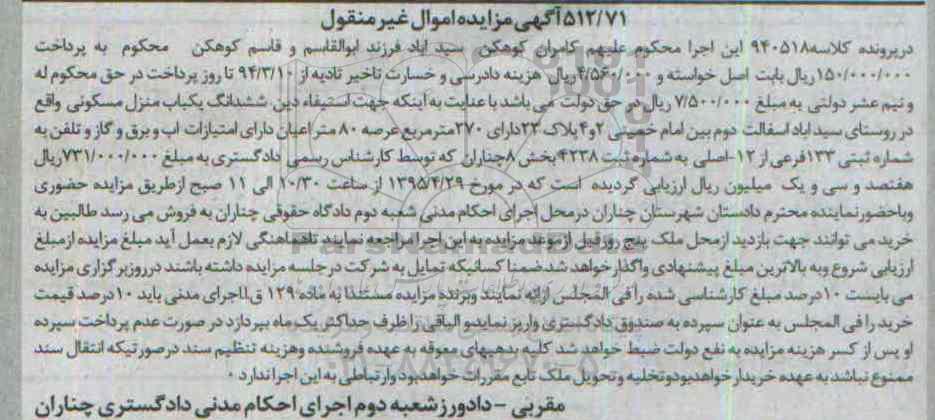 ۵۱۲/۷۱آگهی مزایده اموال غیر منقول
درپرونده کلاسه۹۴۰۵۱۸ این اجرا محکوم علیهم کامران کوهکن سید اباد فرزند ابوالقاسم و قاسم کوهکن محکوم به پرداخت
۱۵۰/۰۰۰/۰۰۰ریال بابت اصل خواسته و ۴/۵۶۰/۰۰۰ریال هزینه دادرسی و خسارت تاخیر تادیه از ۹۴/۳/۱۰ تا روز پرداخت در حق محکوم له
و نیم عشر دولتی به مبلغ ۷/۵۰۰/۰۰۰ ریال در حق دولت می باشد با عنایت به اینکه جهت استیفاء دین ششدانگ یکباب منزل مسکونی واقع
در روستای سید اباد اسفالت دوم بین امام خمینی ۲و۴ پلاک ۲۳دارای ۲۷۰مترمربع عرصه ۸۰ متر اعیان دارای امتیازات اب و برق و گاز و تلفن به
شماره ثبتی ۱۳۳فرعی از ۱۲-اصلی به شماره ثبت ۴۲۳۸بخش ۸چناران که توسط کارشناس رسمی دادگستری به مبلغ ۷۳۱/۰۰۰/۰۰۰ریال
هفتصد و سی و یک میلیون ریال ارزیابی گردیده است که در مورخ ۱۳۹۵/۴/۲۹ از ساعت ۱۰/۳۰ الی ۱۱ صبح ازطریق مزایده حضوری
وباحضور نماینده محترم دادستان شهرستان چناران درمحل اجرای احکام مدنی شعبه دوم دادگاه حقوقی چناران به فروش می رسد طالبین به
خرید می توانند جهت بازدید ازمحل ملک پنج روزقبل ازموعد مزایده به این اجرا مراجعه نمایند تاهماهنگی لازم بعمل آید مبلغ مزایده ازمبلغ
ارزیابی شروع وبه بالاترین مبلغ پیشنهادی واگذار خواهد شد ضمنا کسانیکه تمایل به شرکت در جلسه مزایده داشته باشند درروز برگزاری مزایده
می بایست ۱۰درصد مبلغ کارشناسی شده را فی المجلس ارائه نمایند وبرنده مزایده مستندا به ماده ۱۲۹ ق.ااجرای مدنی باید ۱۰درصد قیمت
خرید را فی المجلس به عنوان سپرده به صندوق دادگستری واریز نمایدو الباقی را ظرف حداکثر یک ماه بپردازد در صورت عدم پرداخت سپرده
او پس از کسر هزینه مزایده به نفع دولت ضبط خواهد شد کلیه بدهیهای معوقه به عهده فروشنده وهزینه تنظیم سند درصورتیکه انتقال سند
ممنوع نباشد به عهده خریدار خواهدبودوتخلیه وتحویل ملک تابع مقررات خواهدبود وارتباطی به این اجرا ندارد .
مقربی - دادورز شعبه دوم اجرای احکام مدنی دادگستری چناران